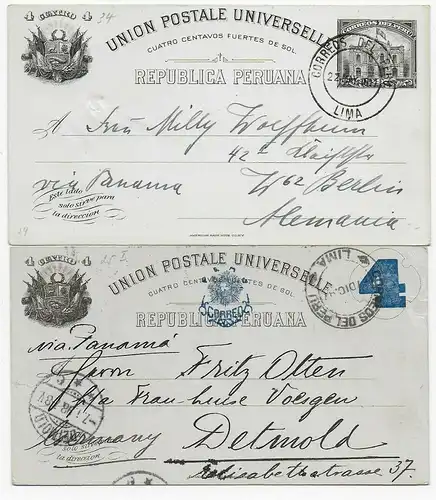 4 CUATRO 4
34
UNION POSTALE UNIVERSELLE
CUATRO CENTAVOS FUERTES DE SOL.
REPUBLICA PERUANA
CORREOS DEL PERU
CORREOS DEL
LIMA
A Frau Milly Wolffheim
42
via Panama
W62 Berlin
Este lado
solo sirve para
la direccion
Alemania
4 CUATRO 4
UNION POSTALE UNIVERSELLE
CUATRO CENTAVOS FUERTES DE SOL.
REPUBLICA PERUANA
CORREOS
4
LIMA
CORREOS DEL PERU
via Panamá
Herrn Fritz Otten
p/a Frau Luise Voesgen
Germany Detmold
solo sirve para
la direccion
Elisabethstrasse 37.